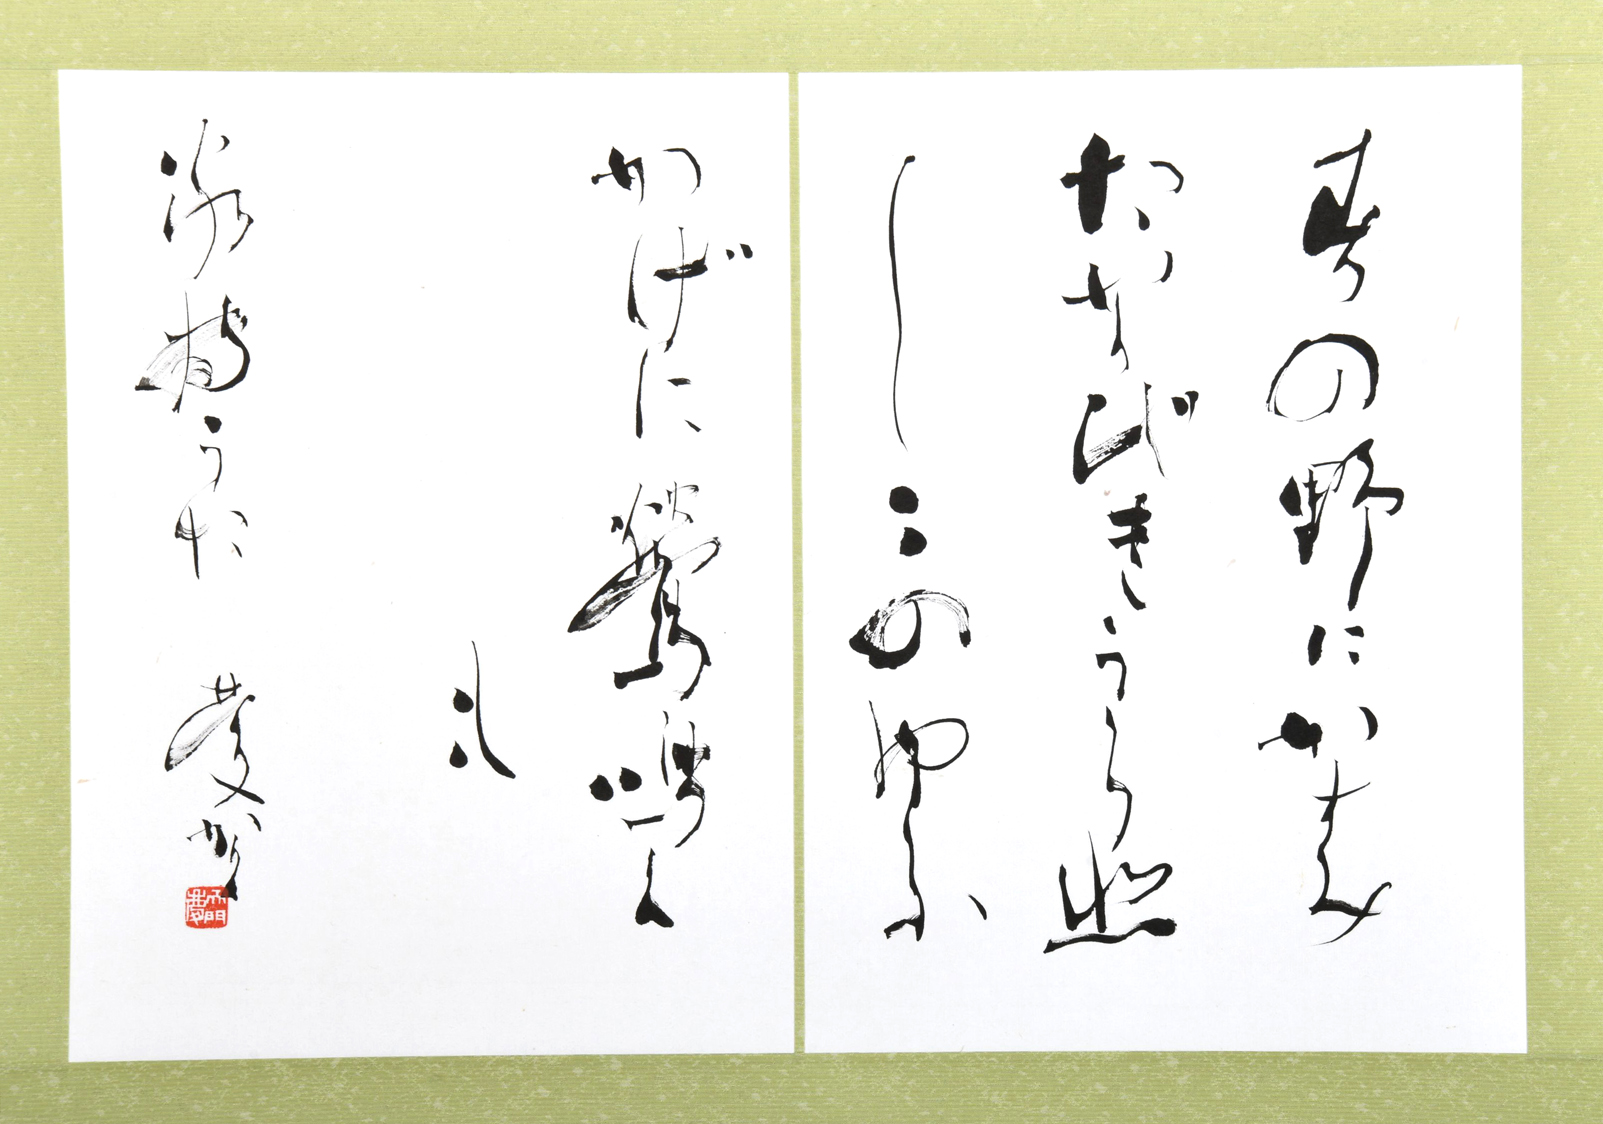 春の野にかすみ
たなびきうら悲
しこのゆふ
かげに鶯鳴く
も
家持うた 慶かく